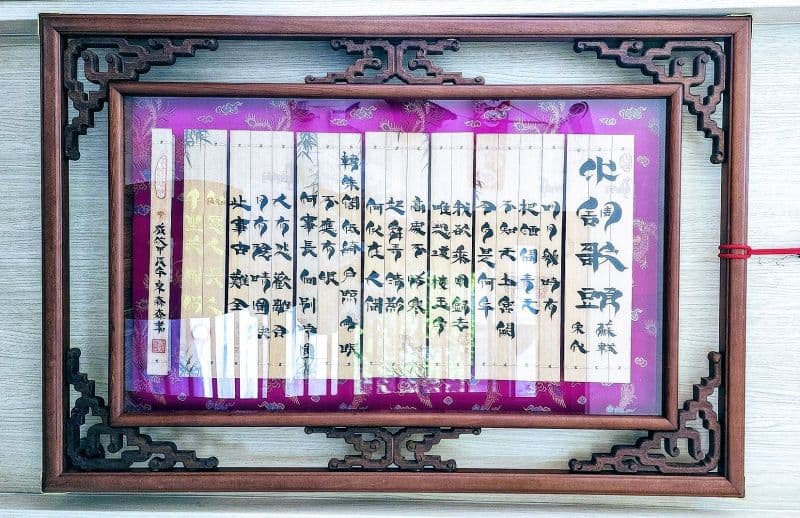 水調歌頭
蘇軾
宋代
明月幾時有
把酒問青天
不知天上宮闕
今夕是何年
我欲乘風歸去
唯恐瓊樓玉宇
高處不勝寒
起舞弄清影
何似在人間
轉朱閣低綺戶照無眠
不應有恨
何事長向別時圓
人有悲歡離合
月有陰晴圓缺
此事古難全